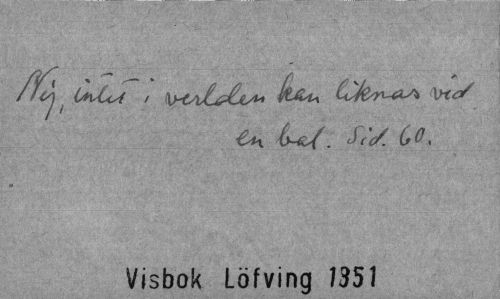 Nej, intet i verlden kan liknas vid
en bal. Sid. 60.
Visbok Löfving 1851